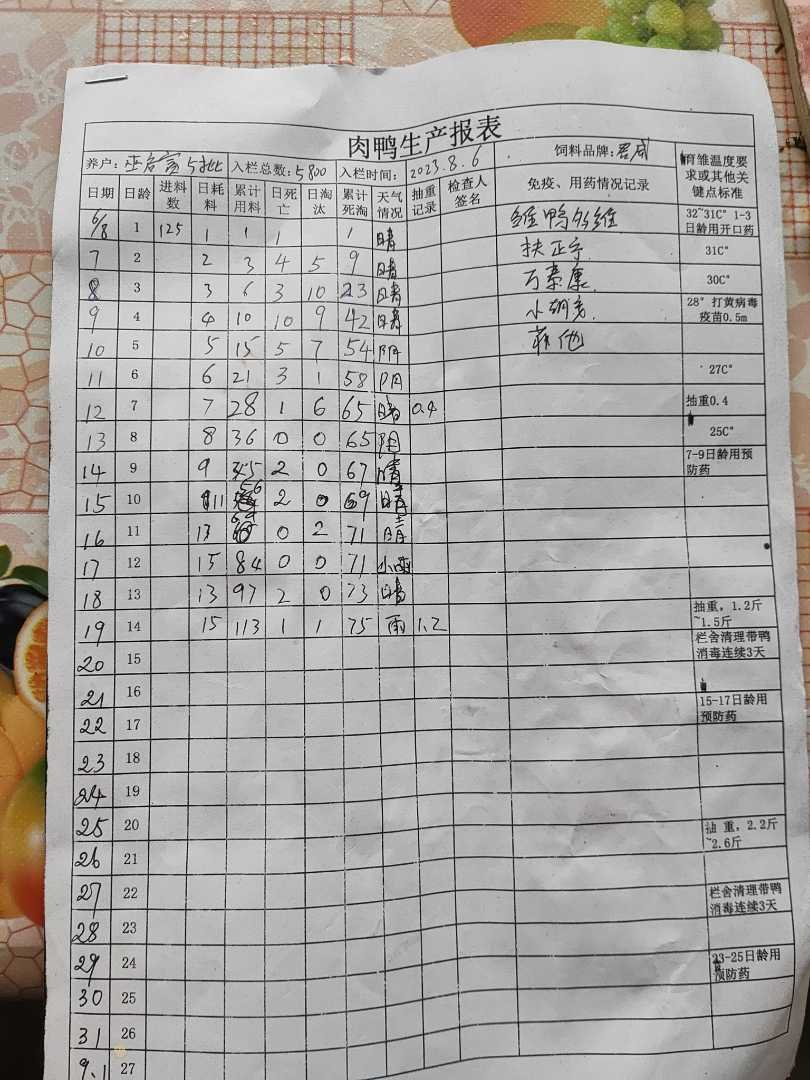 肉鸭生产报表
养户: 巫启富 5批 入栏总数: 5800 入栏时间: 2023.8.6 饲料品牌:
育雏温度要求或其他关键点标准
日期 日龄 进料数 日耗料 累计用料 日死亡 日淘汰 累计死淘 天气情况 抽重记录 检查人签名 免疫、用药情况记录
6/8 1 125 1 1 1 1 晴 维鸭多维 32~31C° 1-3日龄用开口药
7 2 2 3 4 5 9 晴 扶正宁 31C°
8 3 3 6 3 10 23 晴 万素康 30C°
9 4 4 10 10 9 42 晴 28° 打黄病毒疫苗0.5m
10 5 5 15 5 7 54 阴
11 6 6 21 3 1 58 阴 27C°
12 7 7 28 1 6 65 晴 0.4 抽重0.4
13 8 8 36 0 0 65 阴 25C°
14 9 9 45 2 0 67 晴 7-9日龄用预防药
15 10 11 56 2 0 69 晴
16 11 13 69 0 2 71 晴
17 12 15 84 0 0 71 小雨
18 13 13 97 2 0 73 晴
19 14 15 113 1 1 75 雨 1.2 抽重，1.2斤~1.5斤
20 15 栏舍清理带鸭消毒连续3天
21 16
22 17 15-17日龄用预防药
23 18
24 19
25 20 抽 重，2.2斤~2.6斤
26 21
27 22 栏舍清理带鸭消毒连续3天
28 23
29 24 23-25日龄用预防药
30 25
31 26
9.1 27